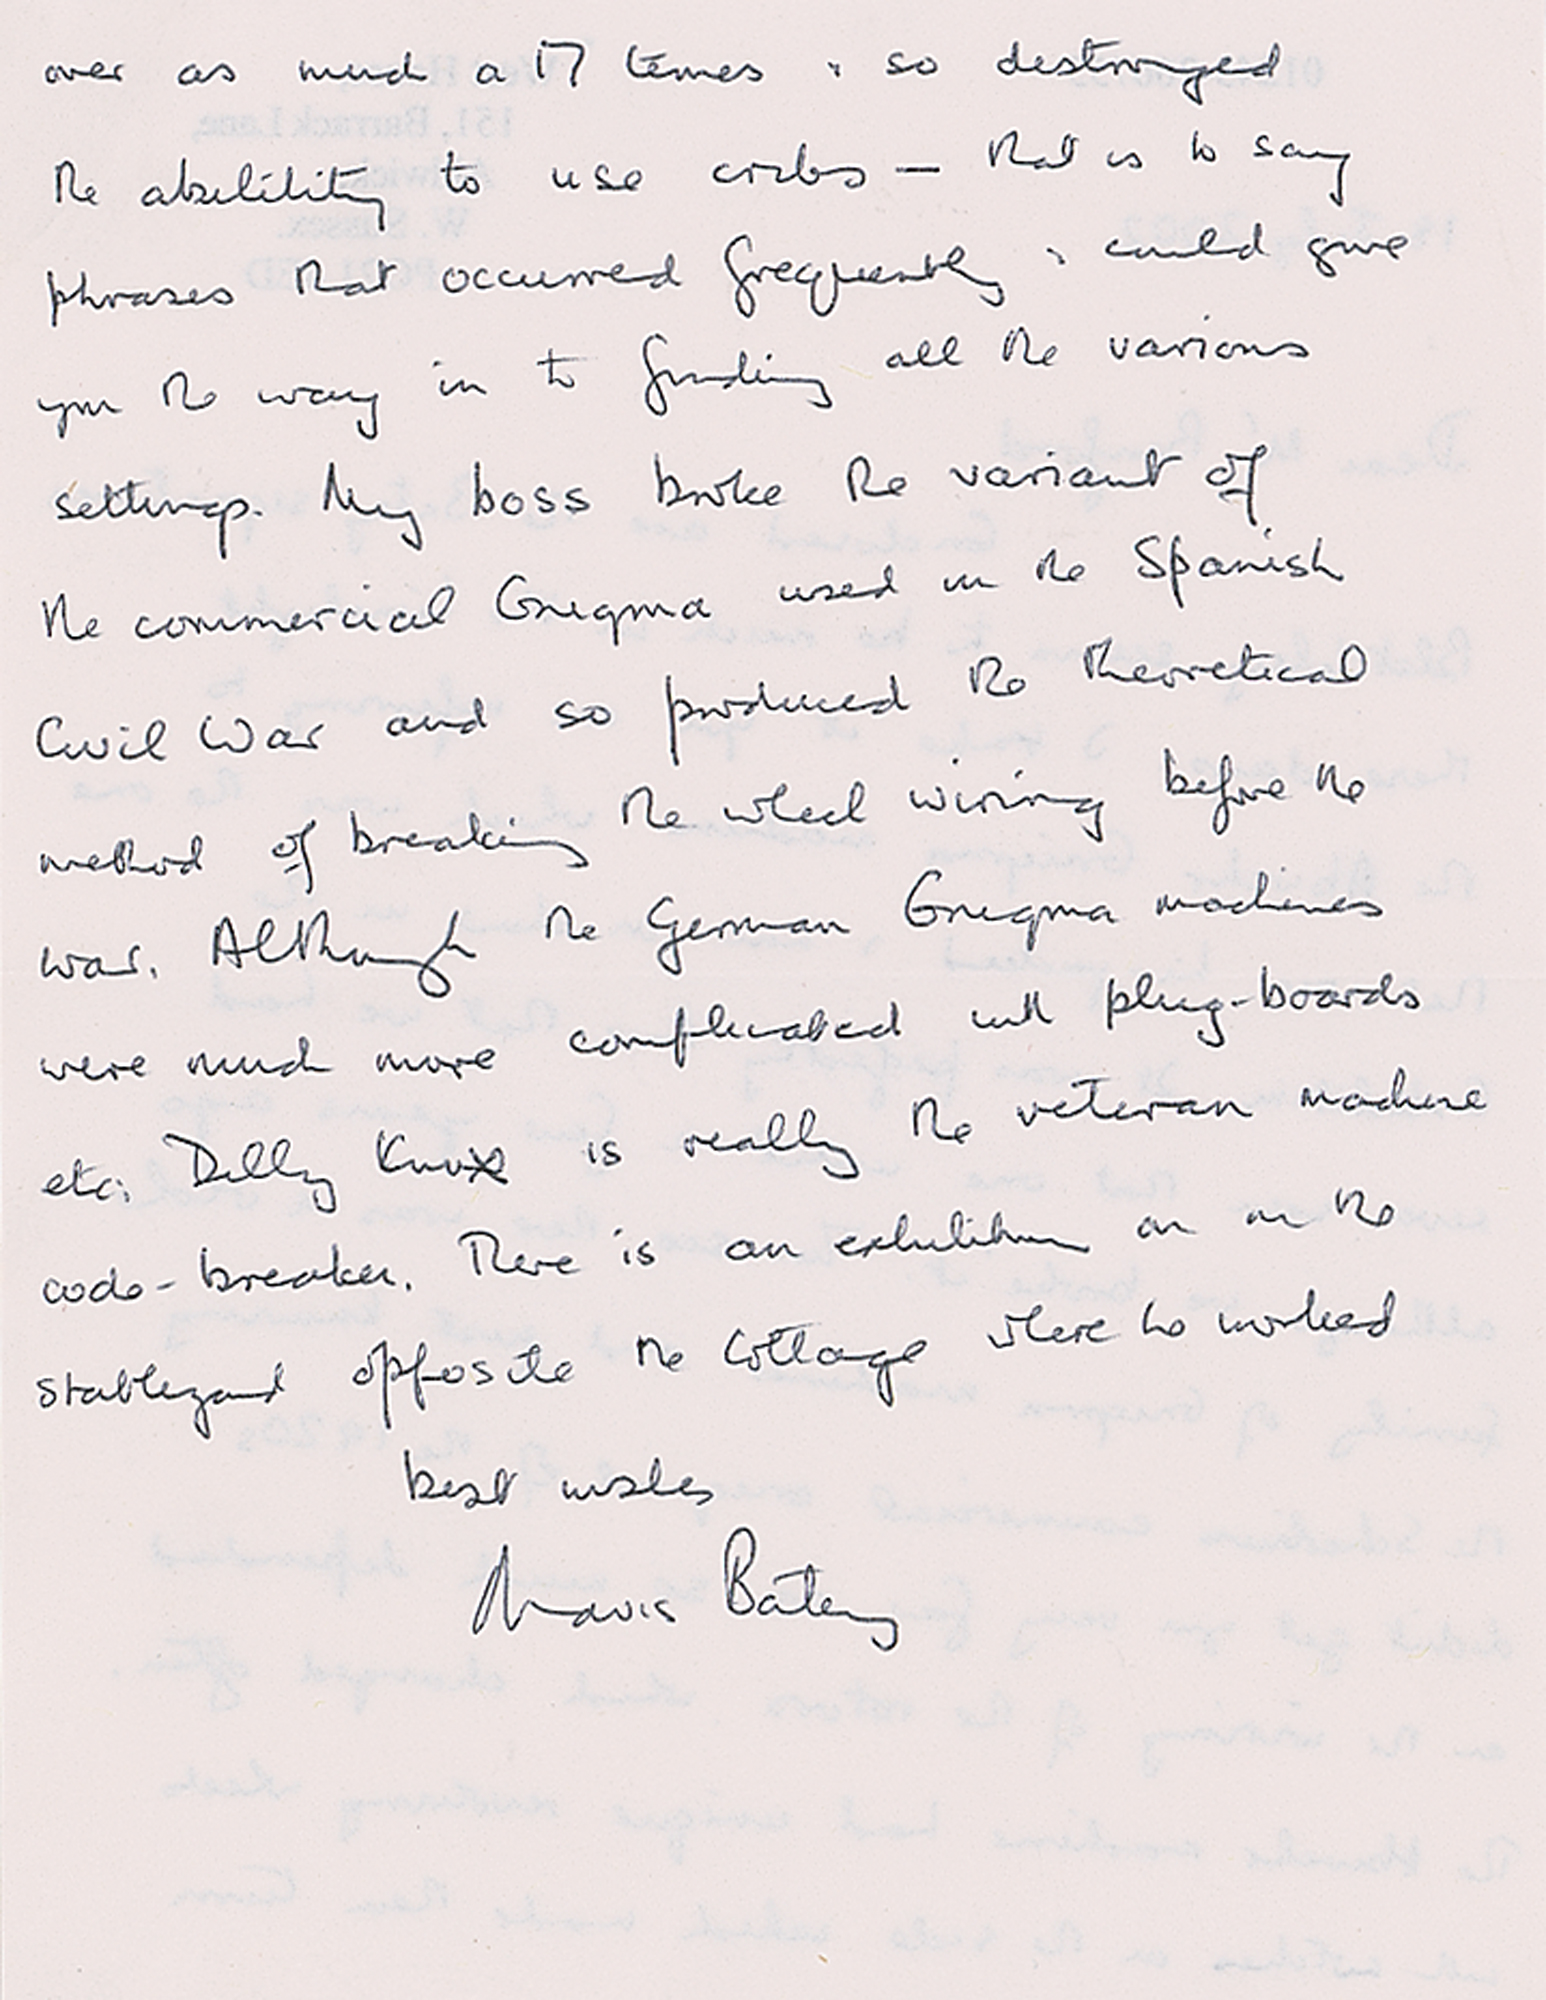 over as much a 17 times & so destroyed
the abilility to use cribs — that is to say
phrases that occurred frequently & could give
you the way in to finding all the various
settings. My boss broke the variant of
the commercial Enigma used in the Spanish
Civil War and so produced the theoretical
method of breaking the wheel wiring before the
war. Although the German Enigma machines
were much more complicated with plug-boards
etc. Dilly Knox is really the veteran machine
code-breaker. There is an exhibition on in the
stableyard opposite the Cottage where he worked
best wishes
Mavis Batey